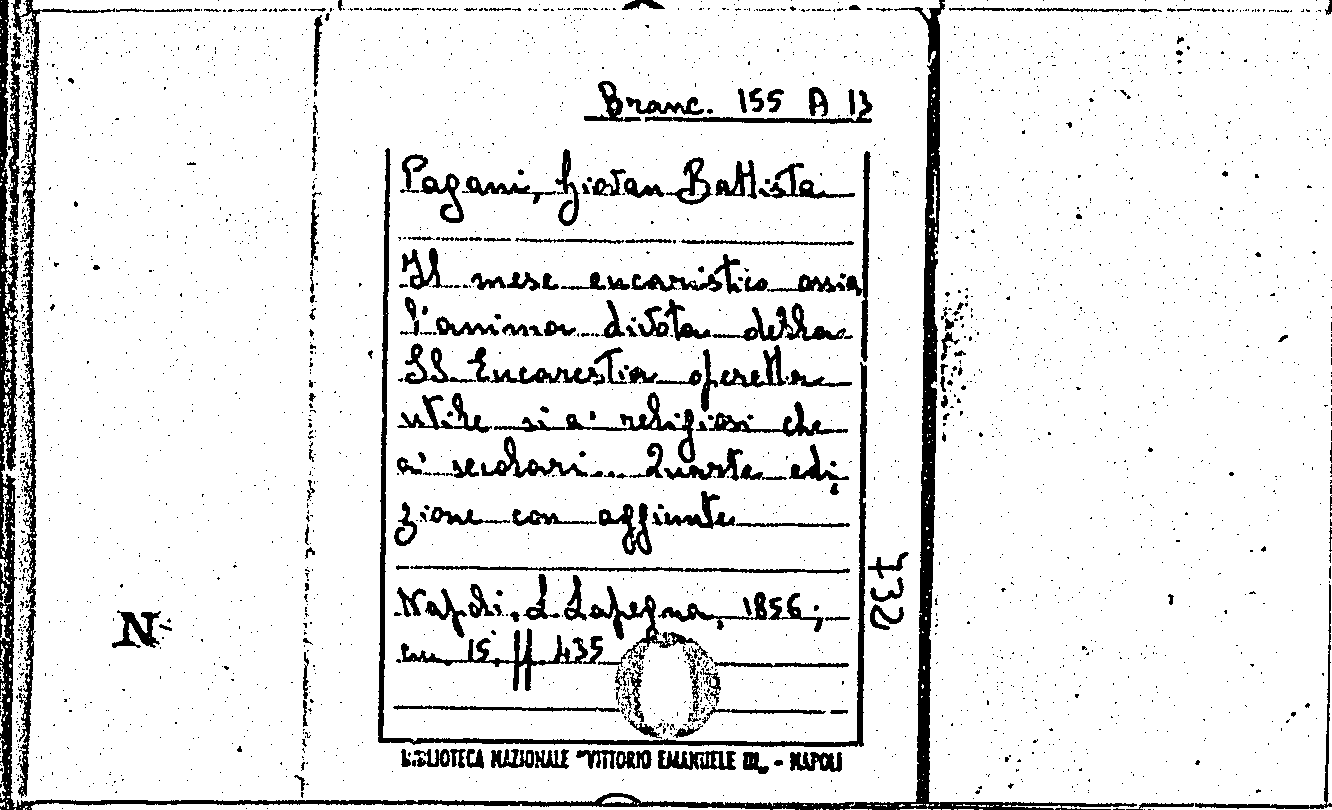 Branc. 155 A 13
Pagani, Giovan Battista
Il mese eucaristico ossia
l'anima divota della
SS Eucarestia operetta
utile si a' religiosi che
ai secolari... Quarta edi
zione con aggiunte
Napoli, L. Lapegna, 1856;
cm. 15. pp. 435
732
N
BIBLIOTECA NAZIONALE "VITTORIO EMANUELE III„ - NAPOLI